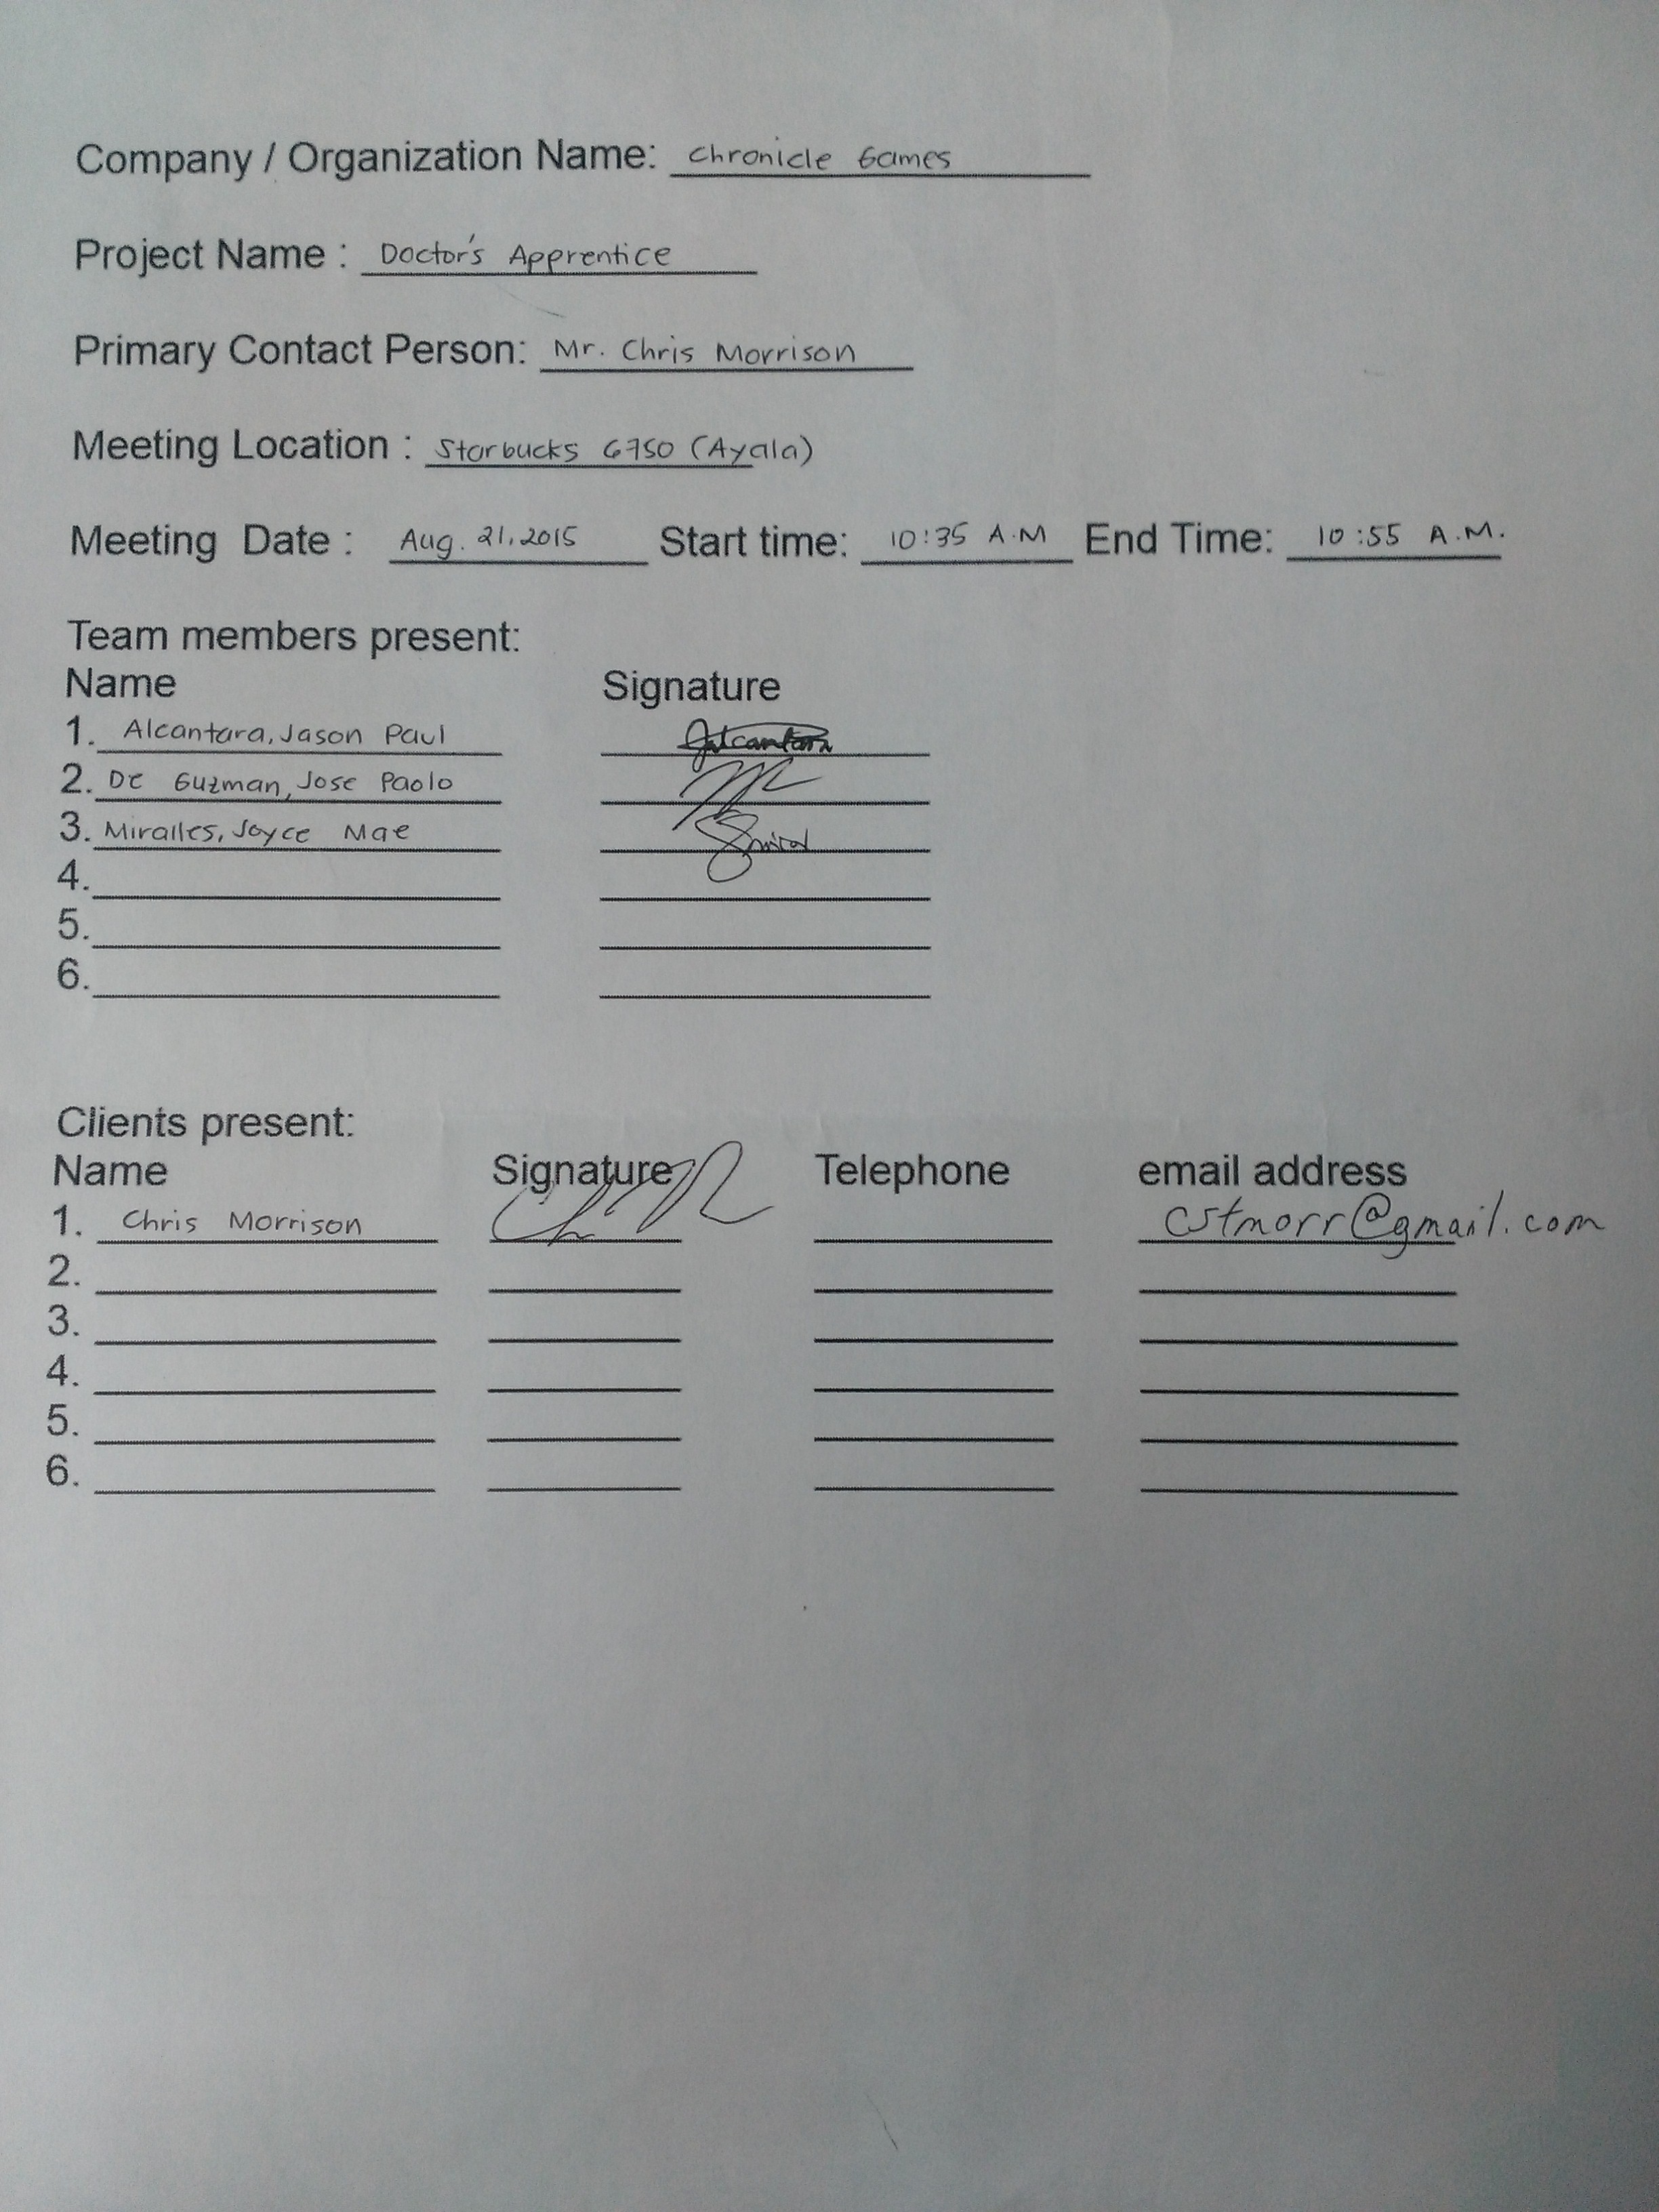 Company / Organization Name: Chronicle Games
Project Name : Doctor's Apprentice
Primary Contact Person: Mr. Chris Morrison
Meeting Location : Starbucks 6750 (Ayala)
Meeting Date : Aug. 21, 2015 Start time: 10:35 A.M End Time: 10:55 A.M.
Team members present:
Name Signature
1. Alcantara, Jason Paul
2. De Guzman, Jose Paolo
3. Miralles, Joyce Mae
4.
5.
6.
Clients present:
Name Signature Telephone email address
1. Chris Morrison cstmorr@gmail.com
2.
3.
4.
5.
6.